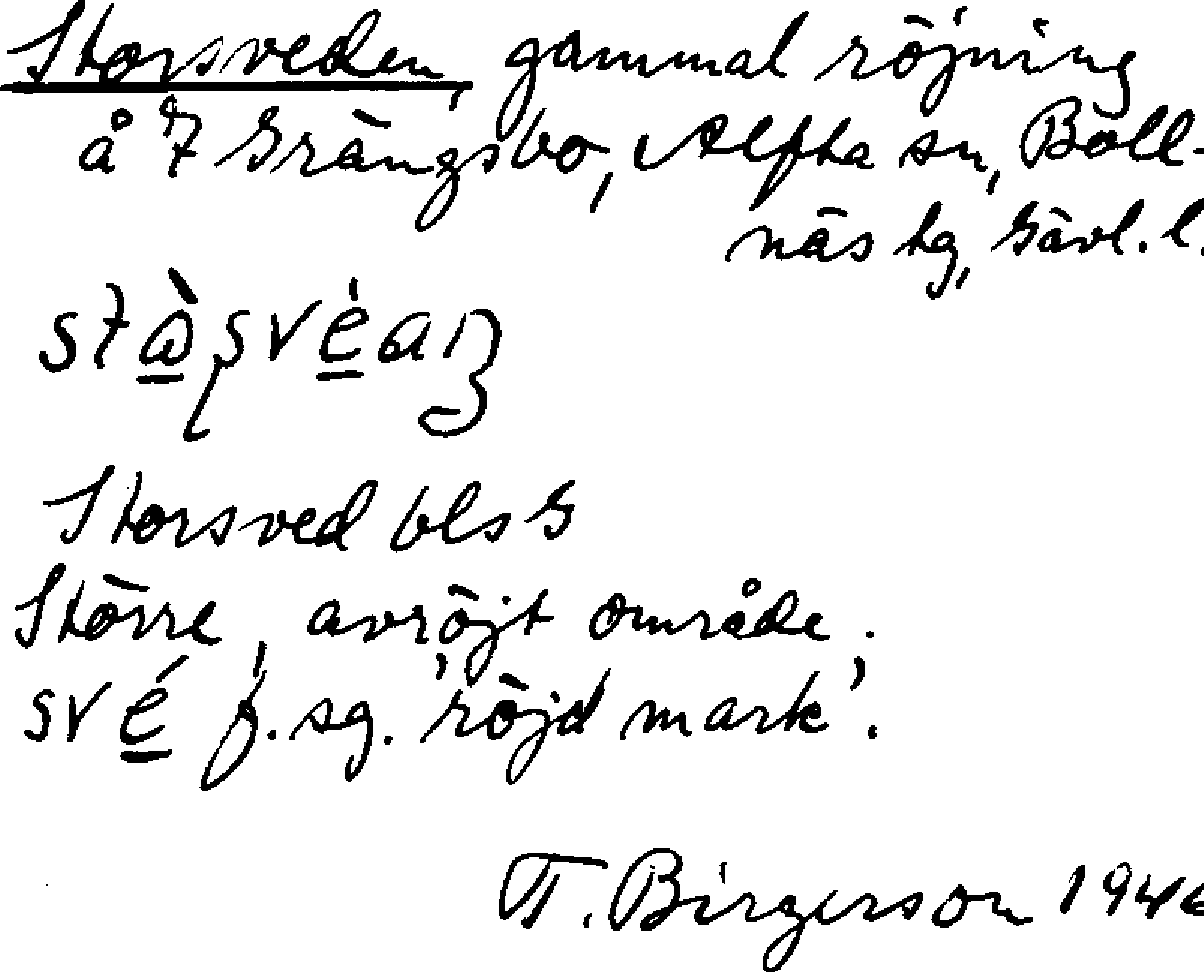 Storsveden, gammal röjning
å 7 Grängsbo, Alfta sn, Boll-
näs tg, Gävl. l.
Storsved bls G
Större, avröjt område.
své f. sg. 'röjd mark'.
T. Birgerson 194